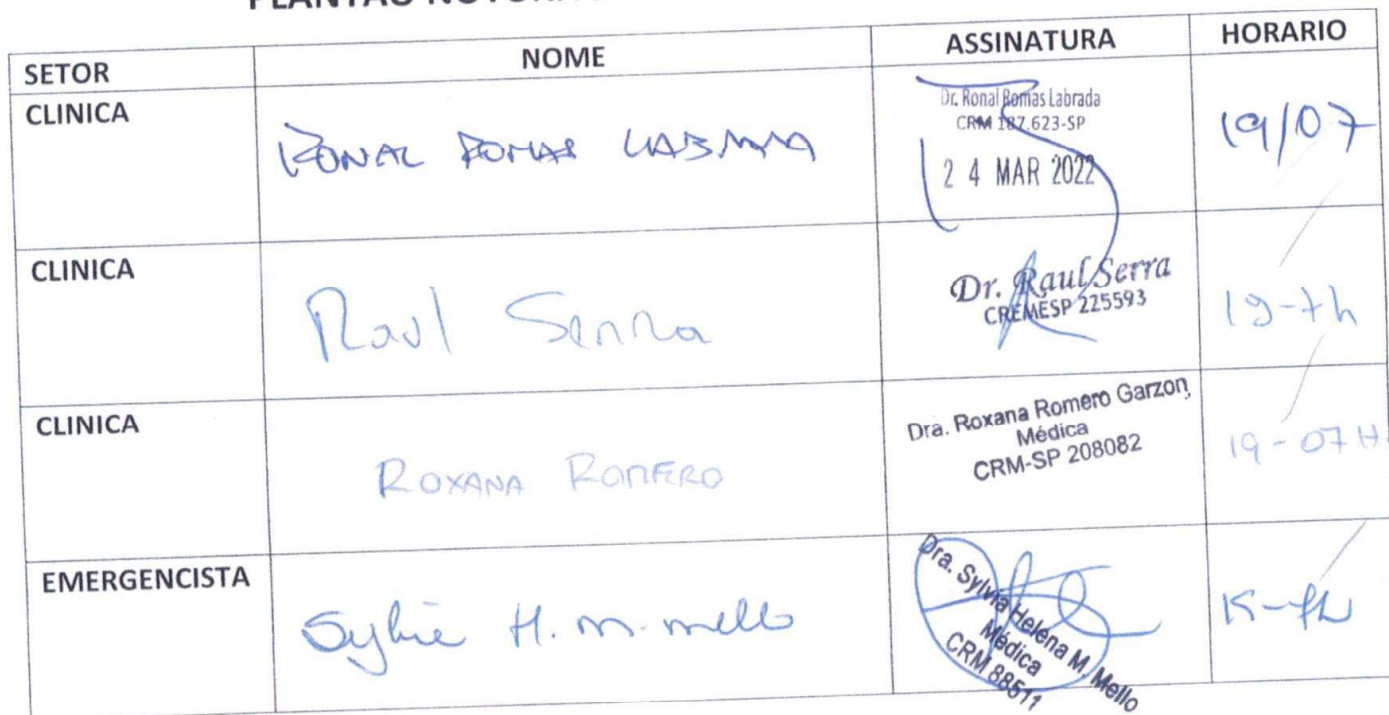 SETOR NOME ASSINATURA HORARIO
CLINICA RONAL ROMAS LABRADA Dr. Ronal Romas Labrada
CRM 187.623-SP
24 MAR 2022
19/07
CLINICA Raul Serra Dr. Raul Serra
CREMESP 225593
19-7h
CLINICA ROXANA ROMERO Dra. Roxana Romero Garzon
Médica
CRM-SP 208082
19-07H
EMERGENCISTA Sylvia H. M. Mello Dra. Sylvia Helena M. Mello
Médica
CRM 88511